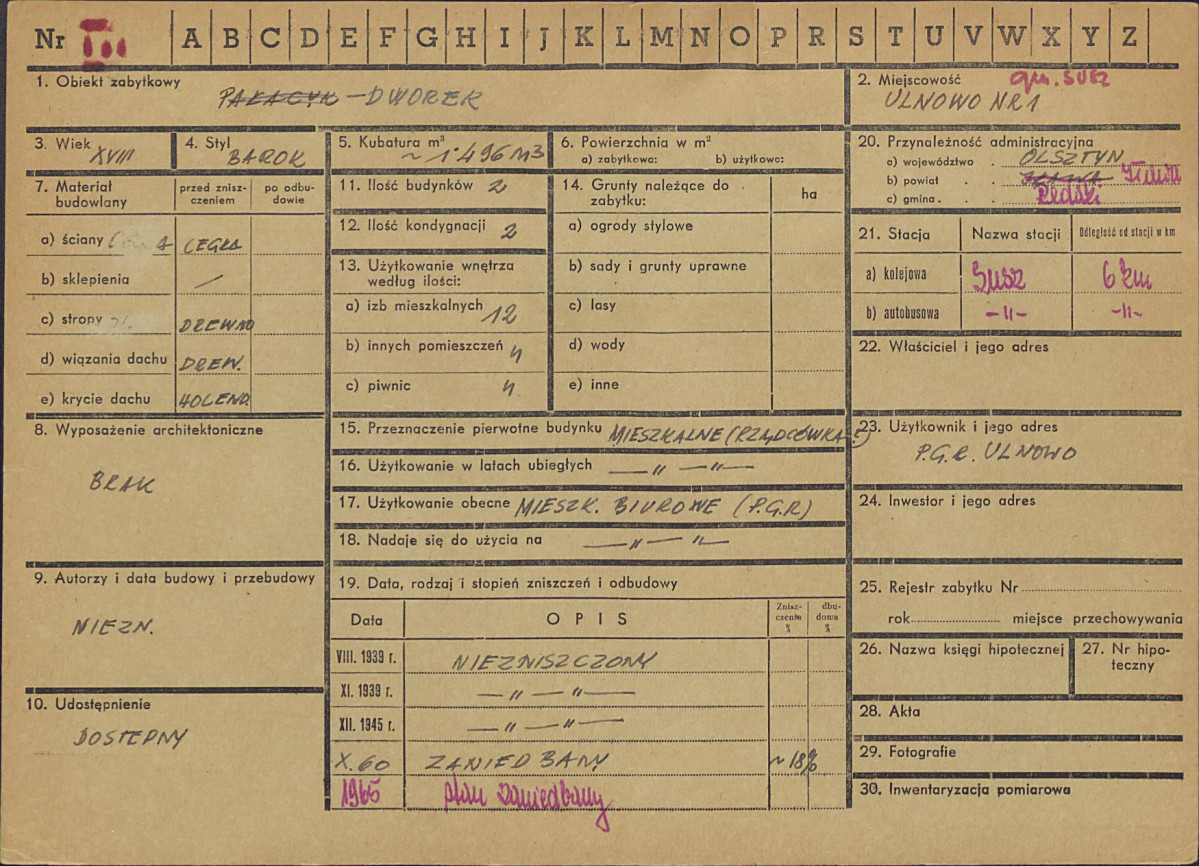 Nr III A B C D E F G H I J K L M N O P R S T U V W X Y Z
1. Obiekt zabytkowy
PAŁACYK – DWOREK
2. Miejscowość gm. SUSZ
ULNOWO NR 1
3. Wiek
XVIII
4. Styl
BAROK
5. Kubatura m³
~ 1·496 M3
6. Powierzchnia w m²
a) zabytkowa: b) użytkowa:
7. Materiał budowlany
przed zniszczeniem
po odbudowie
a) ściany CEGŁA
b) sklepienia —
c) stropy DREWNO
d) wiązania dachu DREW.
e) krycie dachu HOLEND.
8. Wyposażenie architektoniczne
BRAK
9. Autorzy i data budowy i przebudowy
NIEZN.
10. Udostępnienie
DOSTEPNY
11. Ilość budynków 2
12. Ilość kondygnacji 2
13. Użytkowanie wnętrza
według ilości:
a) izb mieszkalnych 12
b) innych pomieszczeń 4
c) piwnic 4
14. Grunty należące do
zabytku:
ha
a) ogrody stylowe
b) sady i grunty uprawne
c) lasy
d) wody
e) inne
15. Przeznaczenie pierwotne budynku MIESZKALNE (RZĄDCÓWKA?)
16. Użytkowanie w latach ubiegłych — " — " —
17. Użytkowanie obecne MIESZK. BIUROWE (P.G.R)
18. Nadaje się do użycia na — " — " —
19. Data, rodzaj i stopień zniszczeń i odbudowy
Data
OPIS
Zniszczenia %
dbudowa %
VIII. 1939 r. NIEZNISZCZONY
XI. 1939 r. — " — " —
XII. 1945 r. — " — " —
X. 60 ZANIEDBANY ~ 18%
1965 stan zaniedbany
20. Przynależność administracyjna
a) województwo . OLSZTYN
b) powiat . . IŁAWA Iława
c) gmina . . .
21. Stacja
Nazwa stacji
Odległość od stacji w km
a) kolejowa Susz 6 km
b) autobusowa – " – – " –
22. Właściciel i jego adres
23. Użytkownik i jego adres
P.G.R. ULNOWO
24. Inwestor i jego adres
25. Rejestr zabytku Nr
rok miejsce przechowywania
26. Nazwa księgi hipotecznej
27. Nr hipoteczny
28. Akta
29. Fotografie
30. Inwentaryzacja pomiarowa